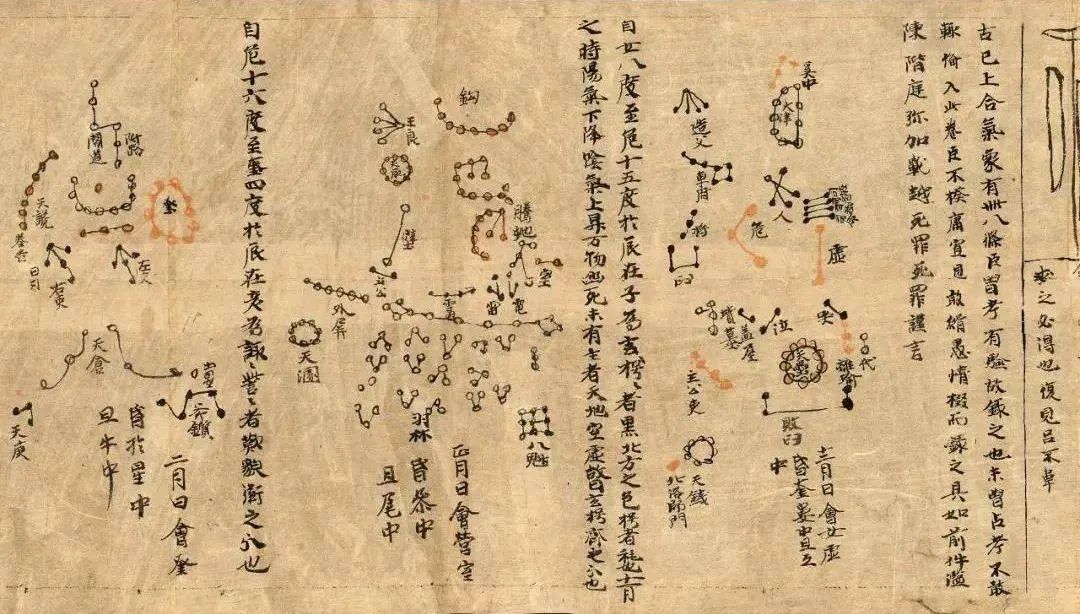 之必得也復見呂不韋
古已上合氣象有卌八條臣曾考有驗故錄之也未曾占考不敢
輒備入此卷臣不揆庸冥見敢緝愚情掇而錄之具如前件濫
陳階庭弥加戰越死罪死罪謹言
天津
人
虛
哭
代
天壘
敗臼
十二月日會女虛
昏奎婁中旦
中
造父
車府
危
杵
臼
泣
蓋屋
墳墓
天錢
北落師門
自女八度至危十五度於辰在子為玄枵〻者黑北方之色枵者耗十一月
之時陽氣下降陰氣上昇万物幽死未有生者天地空虛故曰玄枵齊之分也
鈎
騰虵
室
電
雷
八魁
正月日會營室
昏參中
旦尾中
王良
天廄
壁
雲
羽林
外屏
天溷
自危十六度至奎四度於辰在亥為諏〻訾〻者歎貌衛之分也
附路
閣道
奎
左更
右更
天倉
天庾
二月日會奎
昏於星中
旦牛中